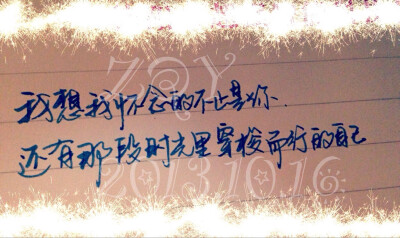 ZQY
我想我怀念的不止是你.
还有那段时光里穿梭而行的自己
20131016